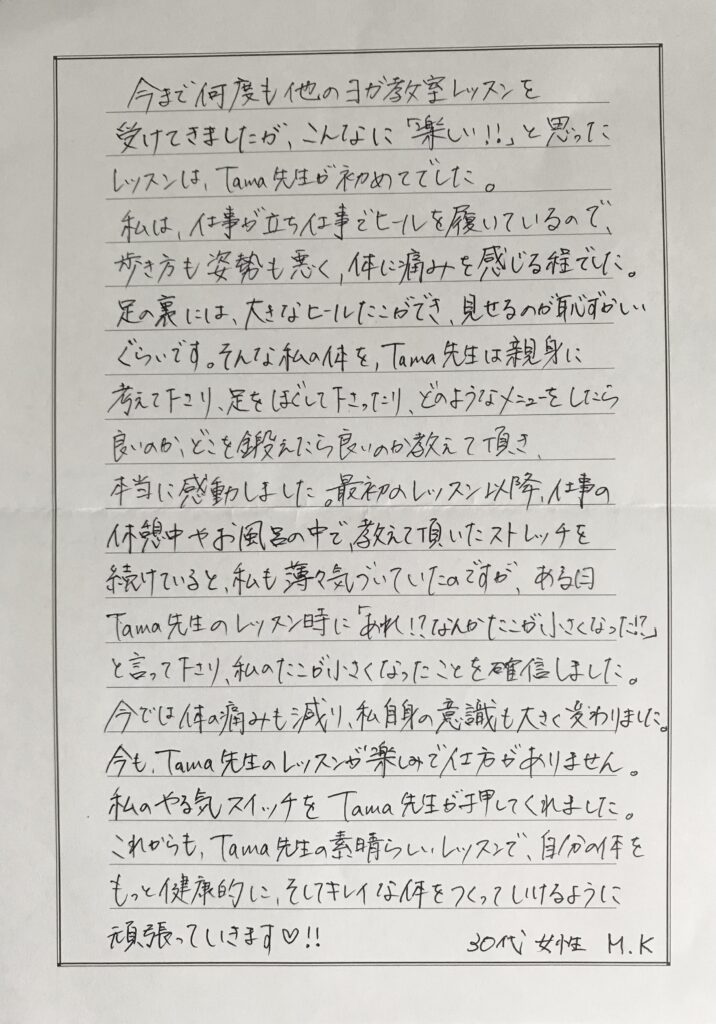 今まで何度も他のヨガ教室レッスンを
受けてきましたが、こんなに「楽しい!!」と思った
レッスンは、Tama先生が初めてでした。
私は、仕事が立ち仕事でヒールを履いているので、
歩き方も姿勢も悪く、体に痛みを感じる程でした。
足の裏には、大きなヒールたこができ、見せるのが恥ずかしい
ぐらいです。そんな私の体を、Tama先生は親身に
考えて下さり、足をほぐして下さったり、どのようなメニューをしたら
良いのか、どこを鍛えたら良いのか教えて頂き、
本当に感動しました。最初のレッスン以降、仕事の
休憩中やお風呂の中で、教えて頂いたストレッチを
続けていると、私も薄々気づいていたのですが、ある日
Tama先生のレッスン時に「あれ!?なんかたこが小さくなった!?」
と言って下さり、私のたこが小さくなったことを確信しました。
今では体の痛みも減り、私自身の意識も大きく変わりました。
今も、Tama先生のレッスンが楽しみで仕方がありません。
私のやる気スイッチをTama先生が押してくれました。
これからも、Tama先生の素晴らしいレッスンで、自分の体を
もっと健康的に、そしてキレイな体をつくっていけるように
頑張っていきます♡!! 30代 女性 M.K